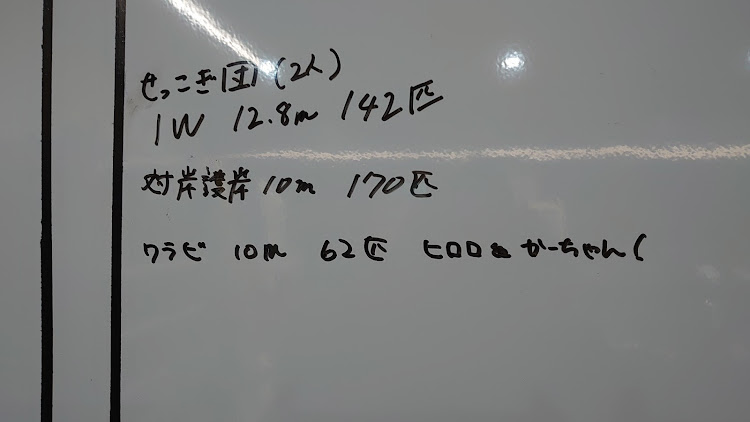 せっこぎ団(2人)
1W 12.8m 142匹
対岸護岸 10m 170匹
ワラビ 10m 62匹 ヒロロ& かーちゃん(